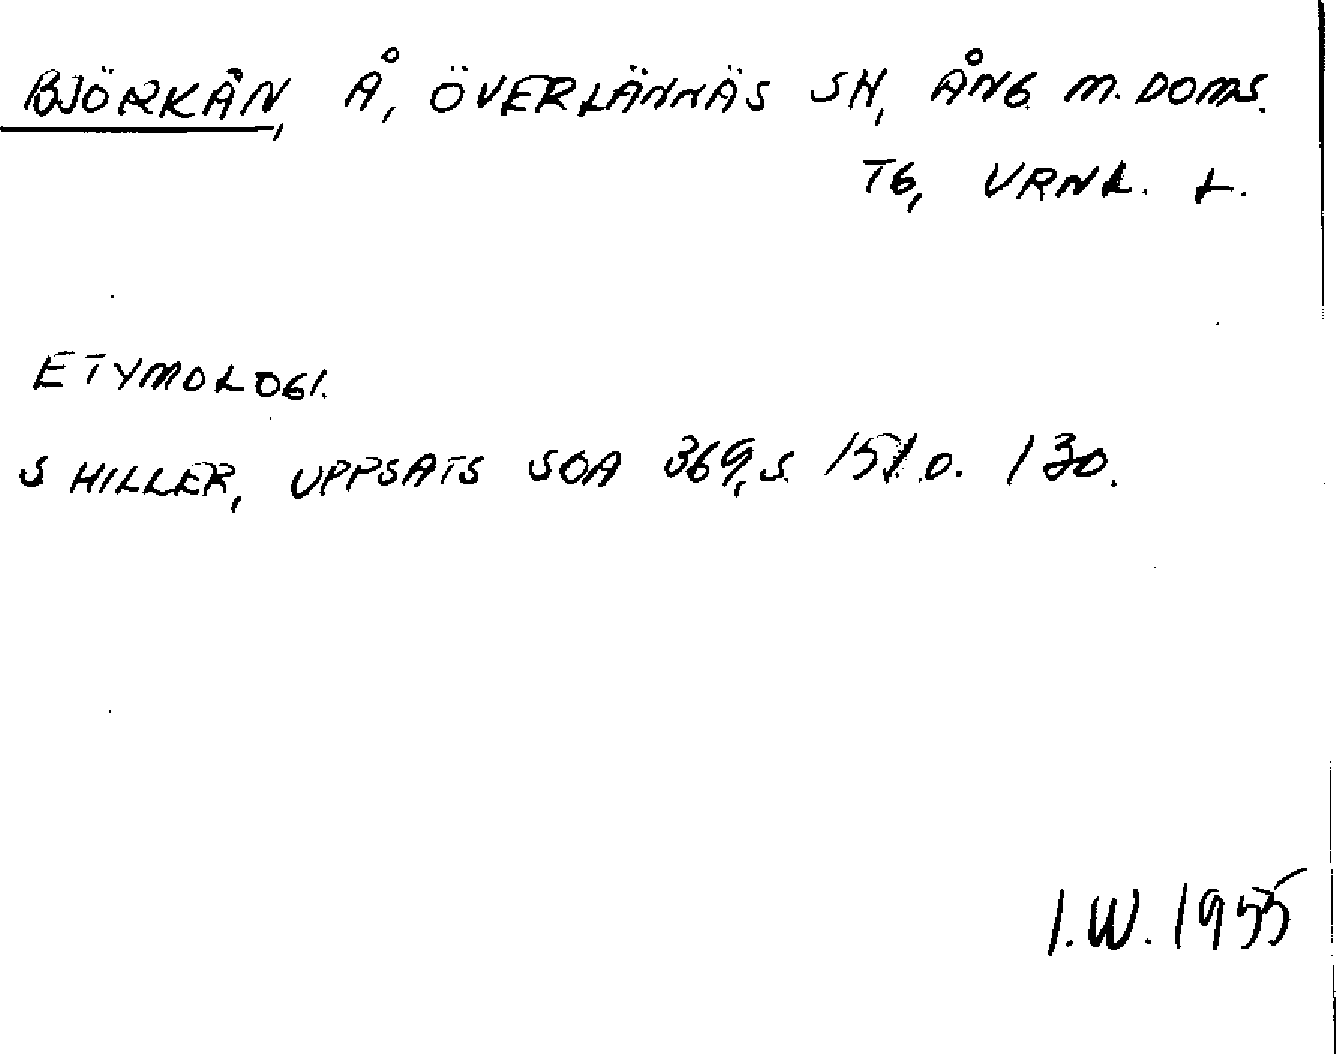 BJÖRKÅN, Å, ÖVERLÄNNÄS SN, ÅNG M. DOMS.
TG, VRNL. L.
ETYMOLOGI.
S HILLER, UPPSATS SOA 369, S. 151 O. 130.
I.W. 1955